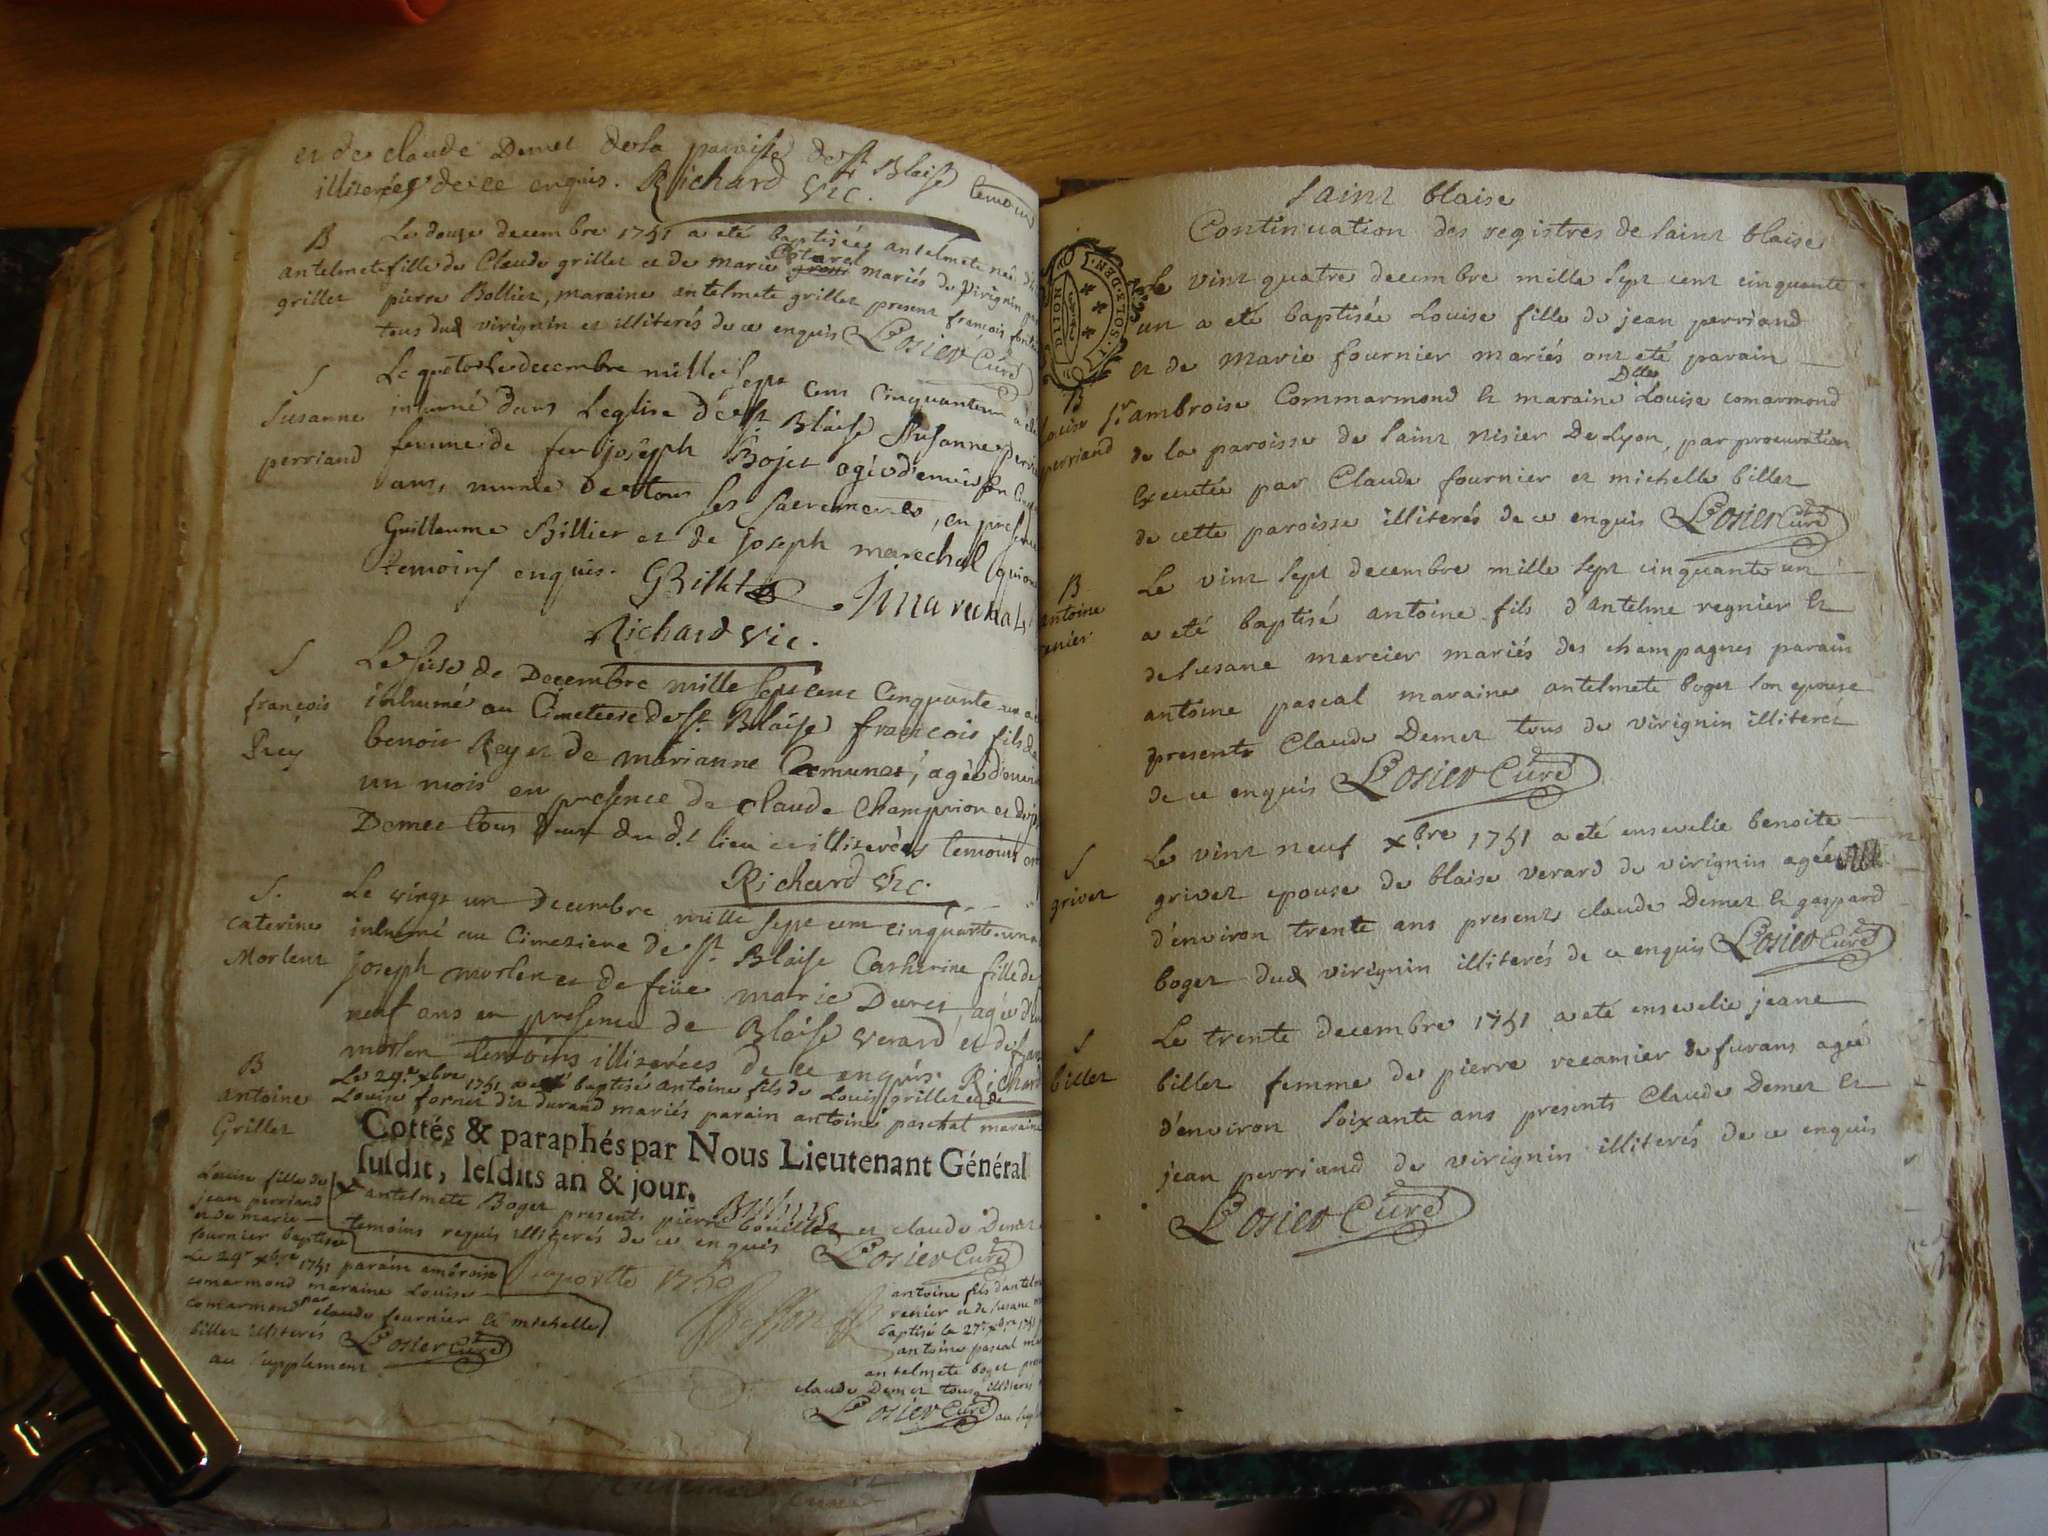 et de claude Demet dela paroisse de st Blaise temoins
illiterées dece enquis. Richard vic.
B
antelmete
grillet
Le douze decembre 1751 a eté baptisées antelmete née
fille de Claude grillet et de marie Cotarel mariés de virignin
pierre Bollier, maraine antelmete grillet present francois
tous dud virignin et illiterés de ce enquis L'osier Curé
S
Susanne
perriand
Le quatorze decembre mille Sept cens Cinquanteun a eté
inhumé dans Leglise de st Blaise Susanne
femme de feu joseph Bojet agée d'environ
ans, munie de tous ses sacremens, en presence
Guillaume Billier et de joseph marechal
temoins enquis. GBilliet Jmarechal
Richard vic.
S
françois
Rey
Le seise de Decembre mille sept cent Cinquante un a
inhumé au Cimetiere de st Blaise francois fils de
benoit Rey et de marianne agée d'environ
un mois en presence de claude Champrion et de
Demet tous deux du dt lieu illiterées temoins
Richard vic.
S.
caterine
Morlent
Le vingt un Decembre mille sept cent cinquante un a
inhumé au Cimetiere de st Blaise Catherine fille de
joseph morlen et de feüe marie Duret agée
neuf ans en presence de Blaise verard et de
morlen temoins illiterées de ce enquis. Richard
B
antoine
Grillet
Le 24e xbre 1751 a eté baptisé antoine fils de Louis grillet et de
Louise fornet dit durand mariés parain antoine paschal maraine
Cottés & paraphés par Nous Lieutenant Général
susdit, lesdits an & jour.
antelmete Boget present pierre et claude Demet
temoins requis illiterés de ce enquis L'osier Curé
Louise fille de
jean perriand
et de marie
fournier baptisée
Le 24e xbre 1751 parain ambroise
comarmond maraine Louise
comarmond par claude fournier et michelle
billet illiterés L'osier Curé
au supplement
1750
antoine fils dantelme
renier et de susane
baptisé le 27e xbre 1751
antoine pascal
antelmete boget
claude Demet tous illiterés
L'osier Curé au
Saint blaise
Continuation des registres de saint blaise
GEN.
B
Louise
perriand
Le vint quatre decembre mille sept cent cinquante
un a eté baptisée Louise fille de jean perriand
et de marie fournier mariés ont eté parain
Sr ambroise Commarmond et maraine Dlle Louise comarmond
de la paroisse de saint nisier De Lyon, par procuration
executée par Claude fournier et michelle billet
de cette paroisse illiterés de ce enquis L'osier Curé
B
antoine
renier
Le vint sept decembre mille sept cinquante un
a eté baptisé antoine fils d'antelme regnier et
de susane mercier mariés des champagnes parain
antoine pascal maraine antelmete boget son epouse
presents Claude Demet tous de virignin illiterés
de ce enquis L'osier Curé
S
grivet
Le vint neuf xbre 1751 a eté ensevelie benoite
grivet epouse de blaise verard de virignin agée
d'environ trente ans presents claude Demet et gaspard
boget dud virignin illiterés de ce enquis L'osier Curé
S
billet
Le trente decembre 1751 a eté ensevelie jeane
billet femme de pierre recamier de furans agée
d'environ soixante ans presents Claude Demet et
jean perriand de virignin illiterés de ce enquis
L'osier Curé